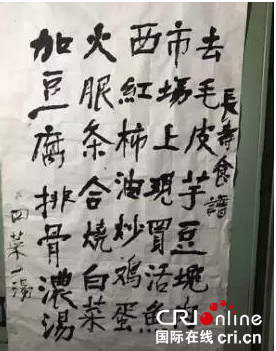 長壽食譜
去毛皮芋豆塊
市場上現買活魚
西紅柿油炒鷄蛋
火腿条合燒白菜
加豆腐排骨濃湯
四菜一湯
CRI online
国际在线 cri.cn